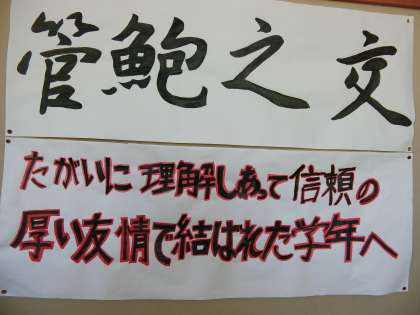 管鮑之交
たがいに理解しあって信頼の
厚い友情で結ばれた学年へ